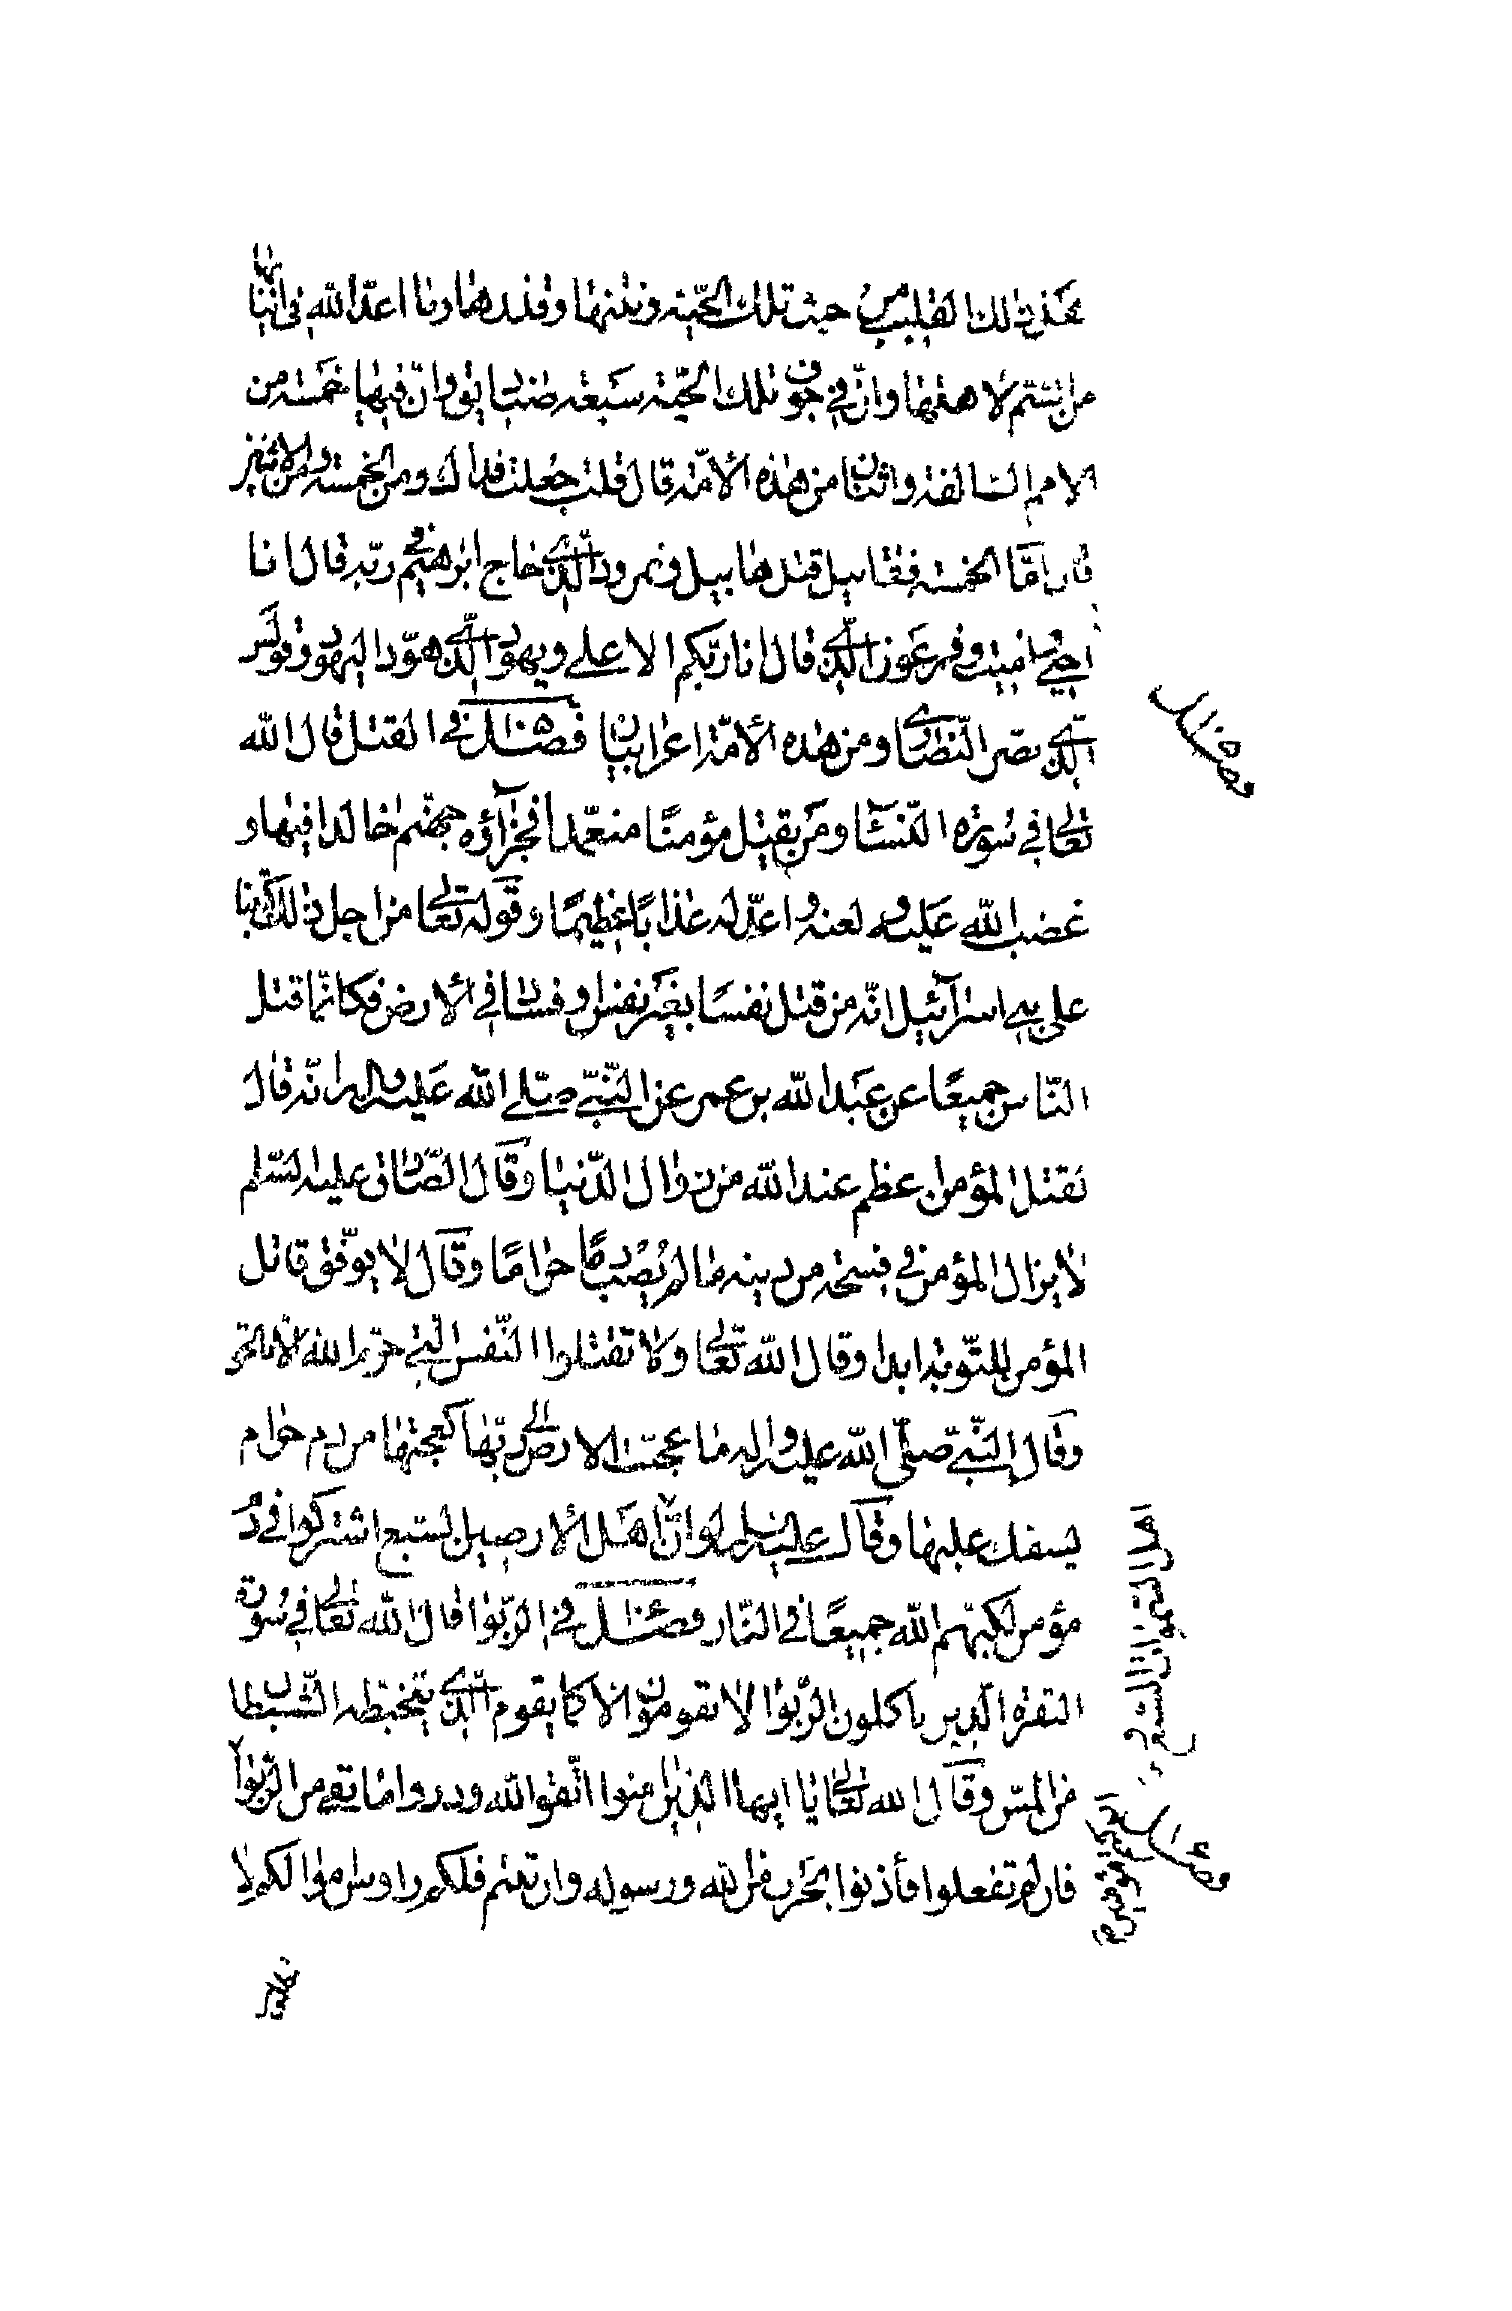 ذلك القليب من حيث تلك الحيّة ونتنها وقذرها وما اعدّ الله في انيابها
من السّم لاهلها وانّ في جوف تلك الحيّة سبعة صناديق وانّ فيها خمسة من
الامم السّالفة واثنان من هذه الأمّة قال قلت جعلت فداك ومن الخمسة ومن الاثنين
قال امّا الخمسة فقابيل قتل هابيل ونمرود الّذي حاج ابرهيم في ربّه قال انا
احيي واميت وفرعون الّذي قال انا ربّكم الاعلى ويهود الّذي هوّد اليهود وبولس
الّذي نصر النّصارى ومن هذه الأمّة اعرابيان فصل في القتل قال الله
تعالى في سورة النّسآء ومن يقتل مؤمنًا متعمّداً فجزآؤه جهنّم خالدا فيها و
غضب الله عليه ولعنه واعدّ له عذابًا عظيمًا وقوله تعالى من اجل ذلك كتبنا
على بني اسرآئيل انّه من قتل نفسًا بغير نفس او فساد في الأرض فكانّما قتل
النّاس جميعًا عن عبد الله بن عمر عن النّبيّ صلّى الله عليه واله انّه قال
لقتل المؤمن اعظم عند الله من زوال الدّنيا وقال الصّادق عليه السّلم
لا يزال المؤمن في فسحة من دينه ما لم يُصب دمًا حرامًا وقال لا يوفّق قاتل
المؤمن للتّوبة ابدا وقال الله تعالى ولا تقتلوا النّفس الّتي حرّم الله الّا بالحق
وقال النّبيّ صلّى الله عليه واله ما عجّت الارض الى ربّها كعجّتها من دم حرام
يسفك عليها وقال عليه السلم لو انّ اهل الأرضين السّبع اشتركوا في دم
مؤمن لكبّهم الله جميعًا في النّار فصل في الرّبوا قال الله تعالى في سورة
البقرة الّذين ياكلون الرّبوا لا يقومون الّا كما يقوم الّذي يتخبّطه الشّيطان
من المسّ وقال الله تعالى يا ايها الذين امنوا اتّقوا الله وذروا ما بقي من الرّبوآ
فان لم تفعلوا فأذنوا بحرب من الله ورسوله وان تبتم فلكم رؤوس اموالكم لا